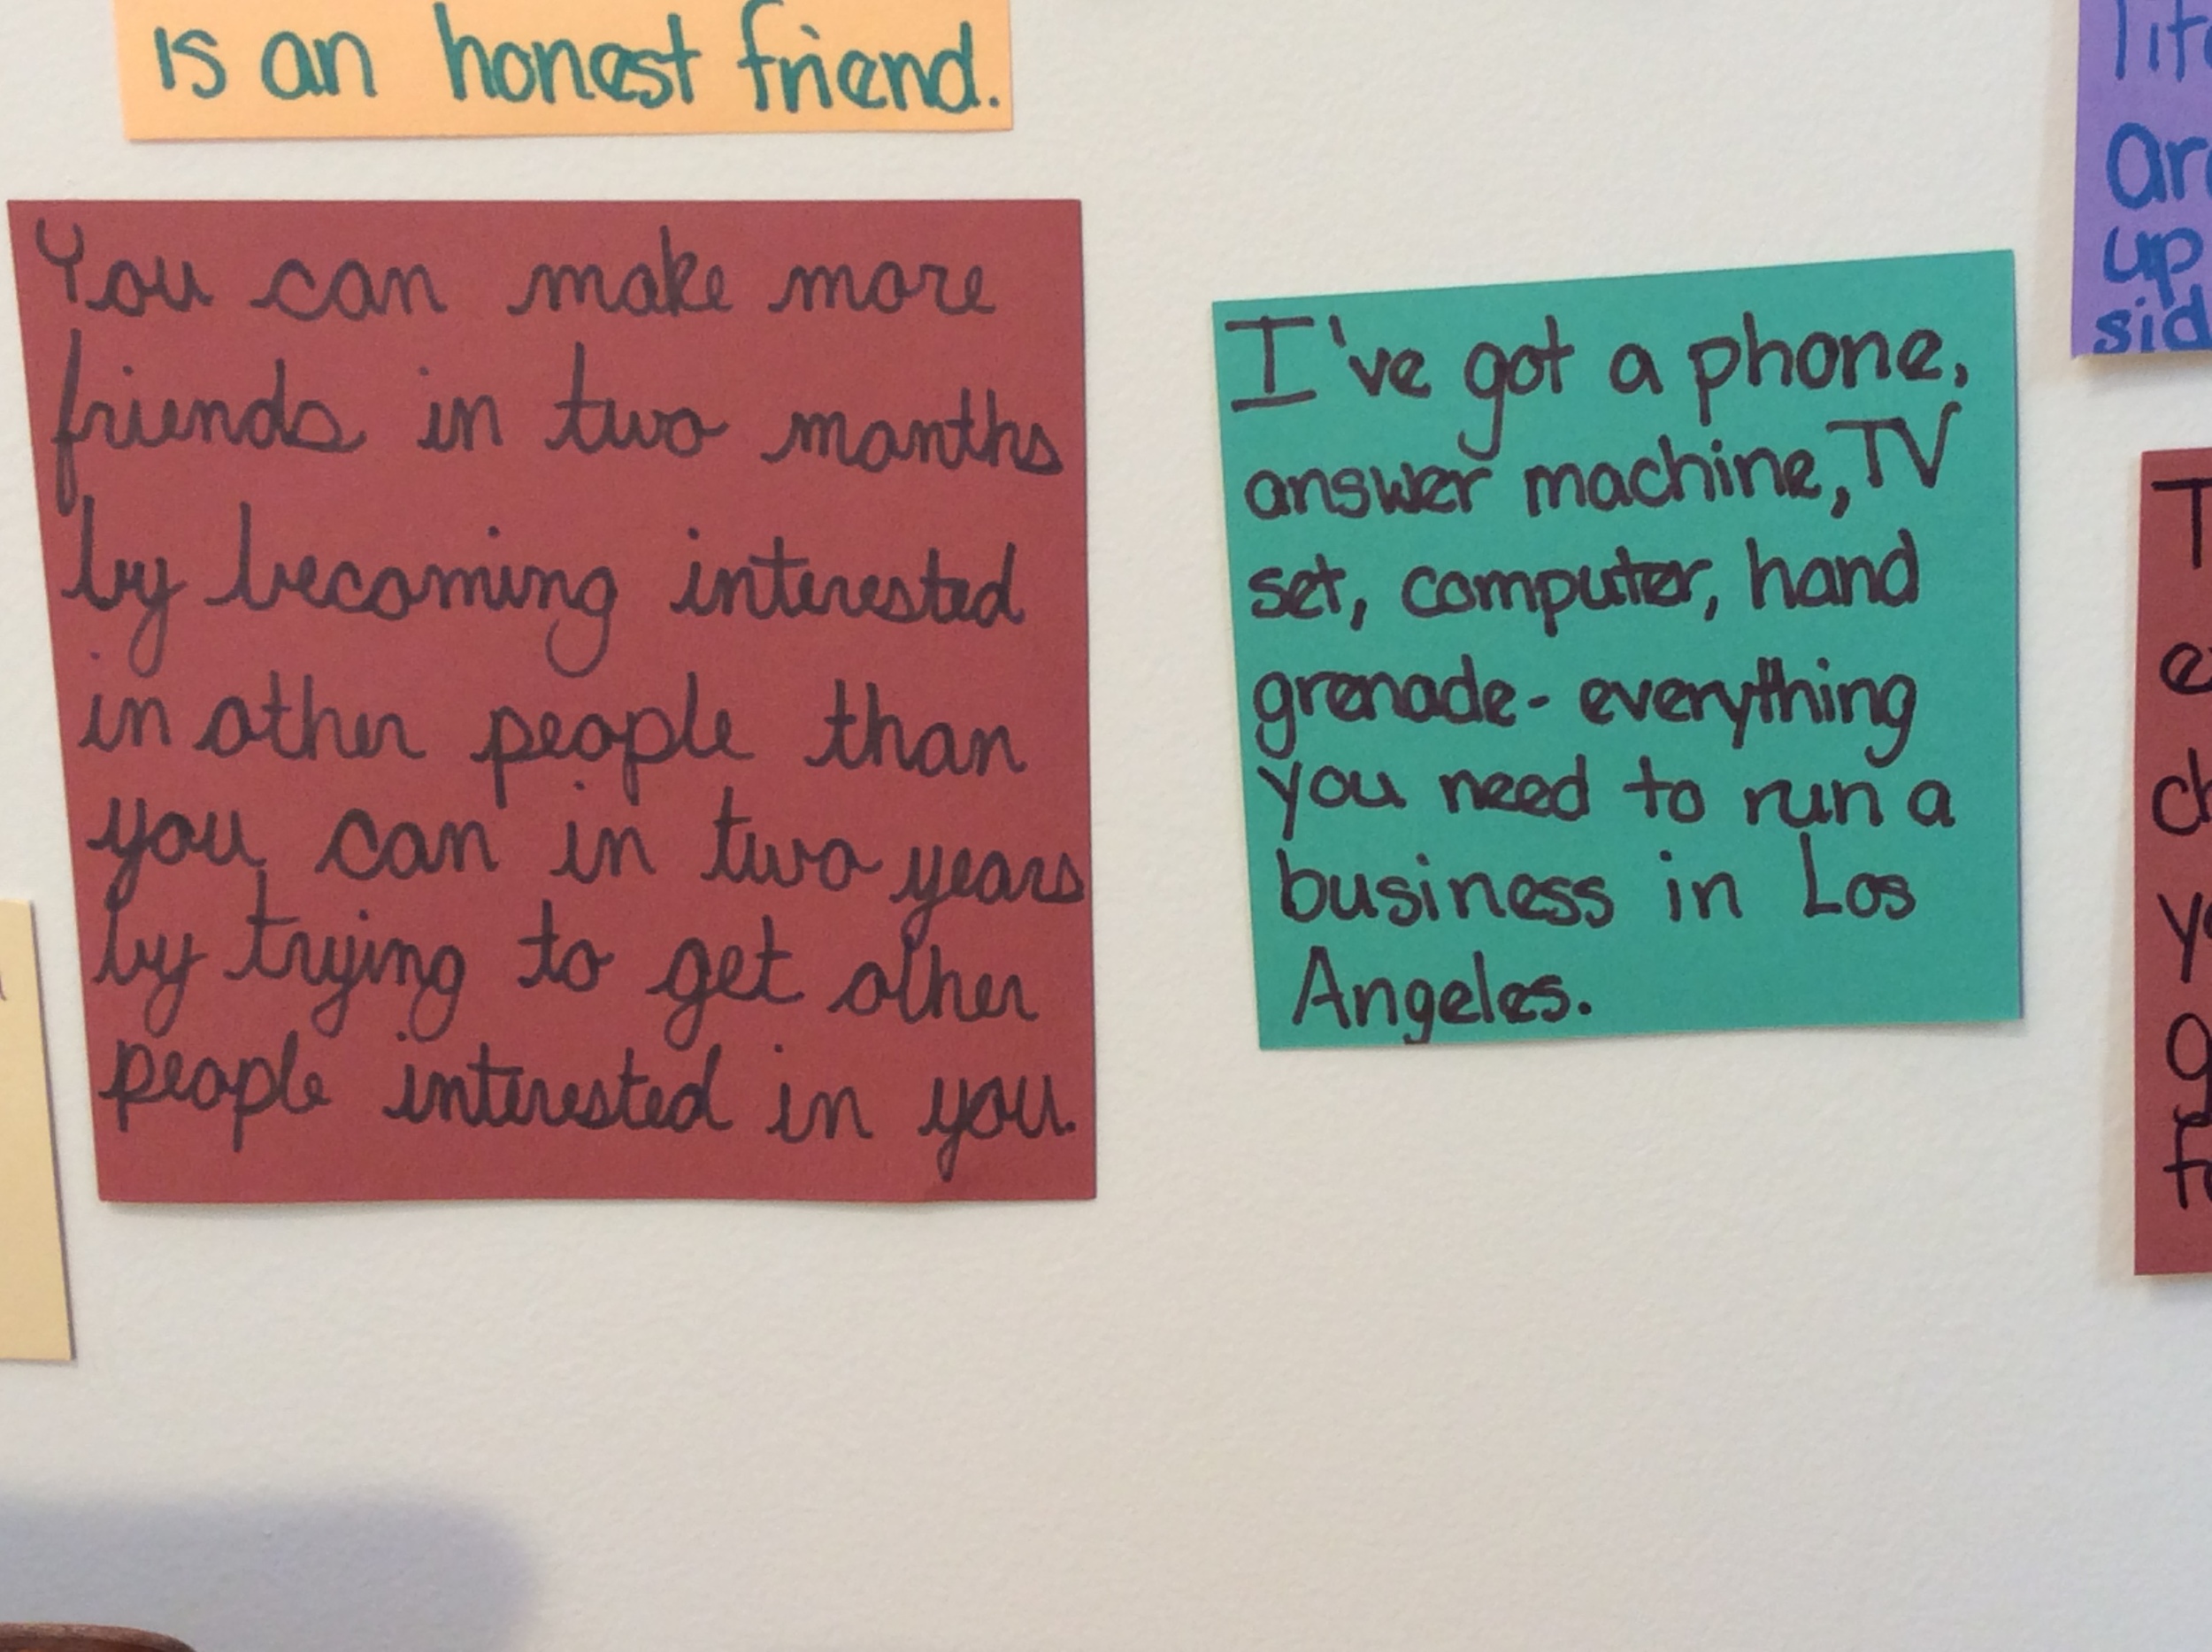 is an honest friend.
You can make more
friends in two months
by becoming interested
in other people than
you can in two years
by trying to get other
people interested in you.
I've got a phone,
answer machine, TV
set, computer, hand
grenade- everything
you need to run a
business in Los
Angeles.
up